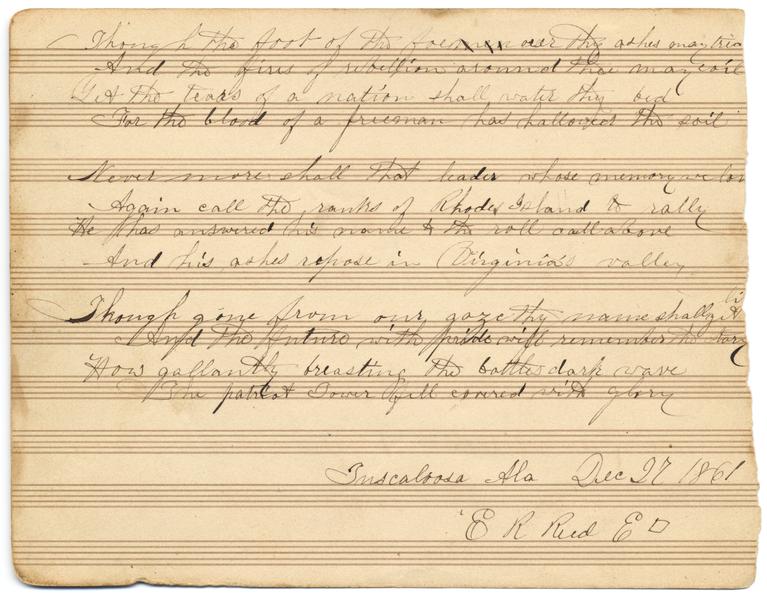 Though the foot of the foemen over thy ashes may tre
And the fires of rebellion around thee may coil
Yet the tears of a nation shall water thy bed
For the blood of a freeman has hallowed the soil
Never more shall that leader whose memory we lov
Again call the ranks of Rhode Island to rally
He has answered his name to the roll call above
And his ashes repose in Virginia's valley
Though gone from our gaze thy name shall yet li
And the future with pride will remember the story
How gallantly breasting the battles dark wave
The patriot Tower fell covered with glory
Tuscaloosa Ala Dec 27 1861
E R Reed E